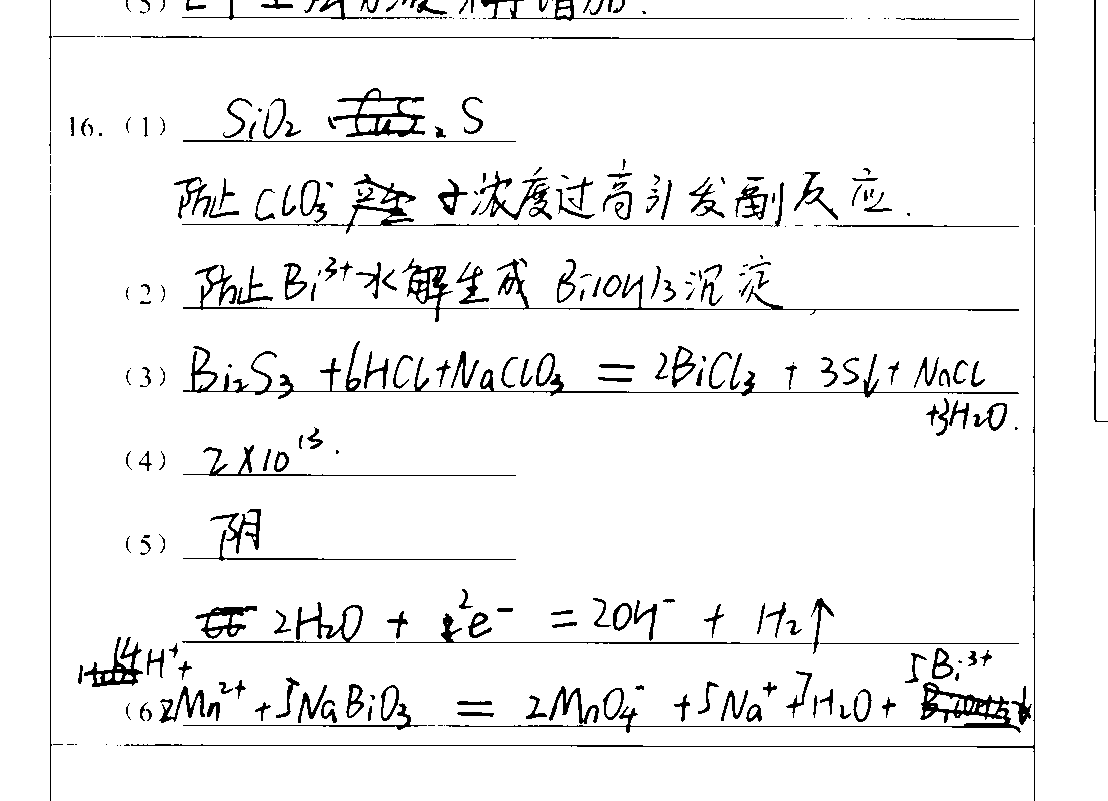 16.(1) SiO2、S
防止ClO3⁻浓度过高引发副反应.
(2) 防止Bi³⁺水解生成 Bi(OH)3沉淀
(3) Bi2S3 +6HCl+NaClO3 = 2BiCl3 + 3S↓+ NaCl
+3H2O.
(4) 2×10¹³.
(5) 阴
2H2O + 2e⁻ = 2OH⁻ + H2↑
14H⁺+ 5Bi³⁺
(6 2Mn²⁺+5NaBiO3 = 2MnO4⁻ +5Na⁺+7H2O+